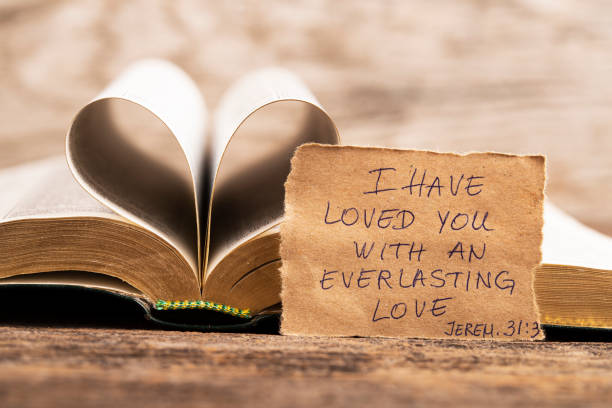 I HAVE
LOVED YOU
WITH AN
EVERLASTING
LOVE
JEREM. 31:3